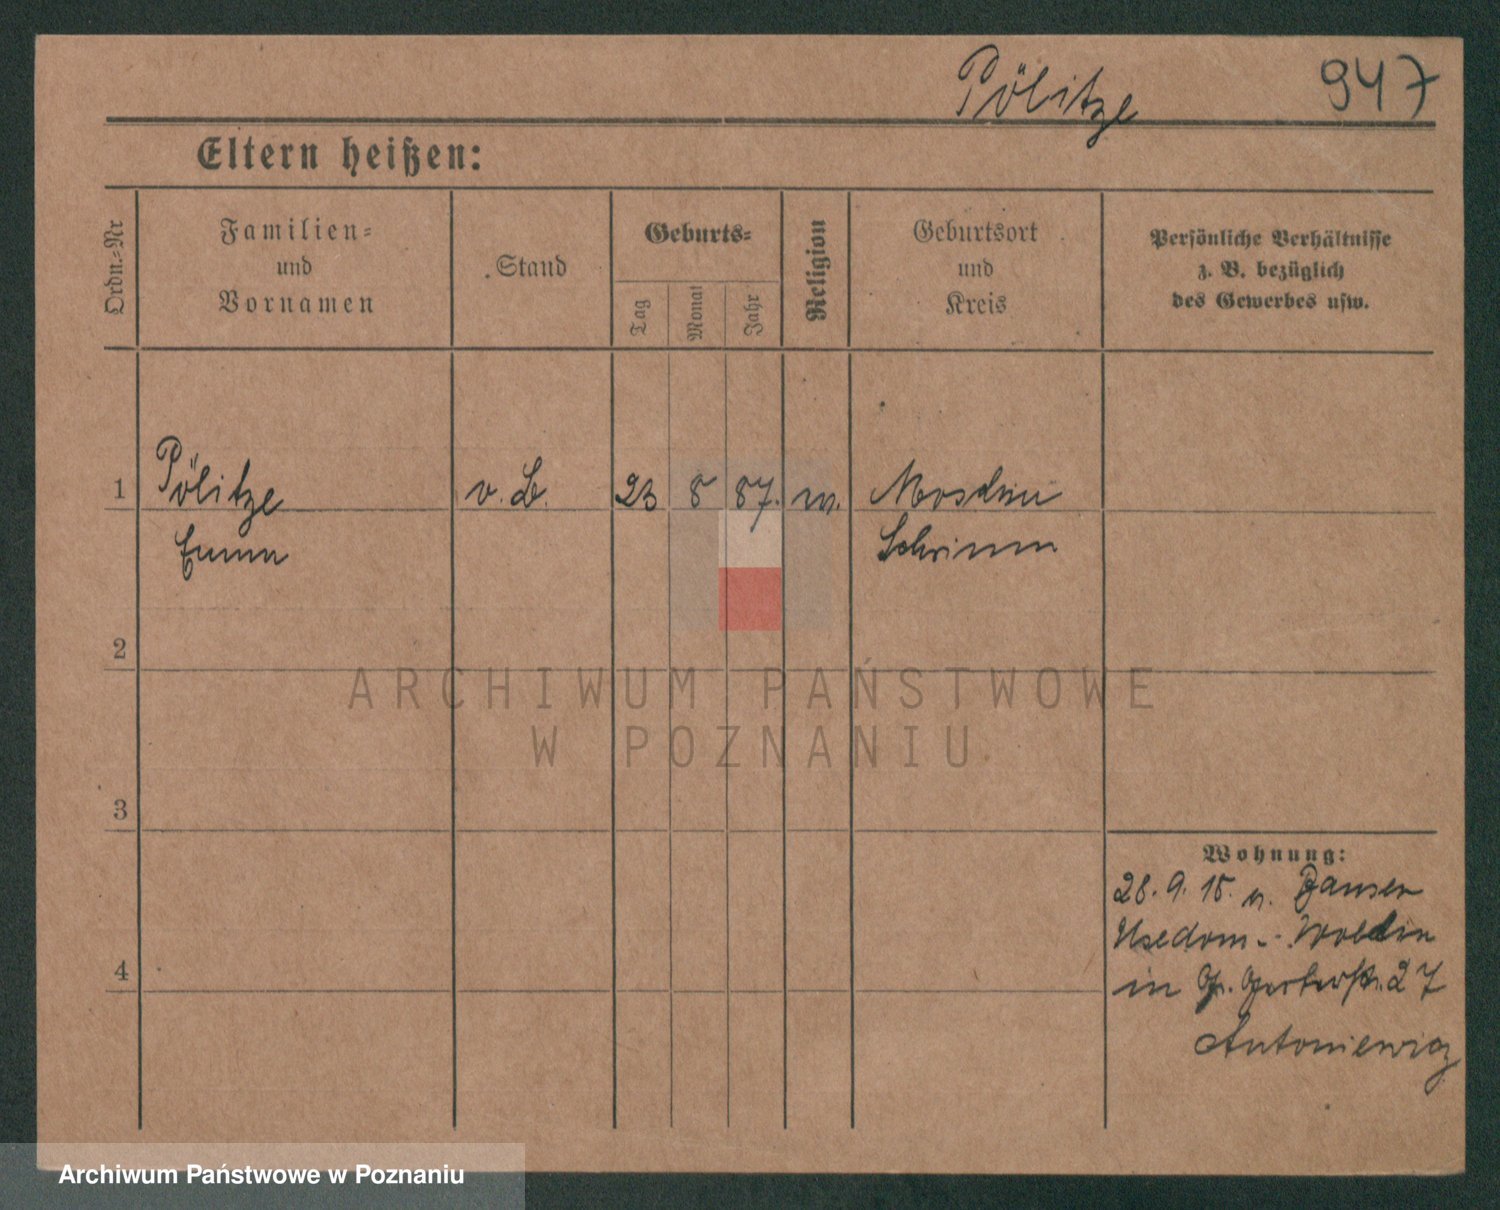 Pölitze 947
Eltern heißen:
Ordn.-Nr
Familien-
und
Vornamen
Stand
Geburts-
Tag
Monat
Jahr
Religion
Geburtsort
und
Kreis
Persönliche Verhältnisse
z. B. bezüglich
des Gewerbes usw.
1 Pölitze v. L. 23 8 87.
Emma Schrimm
2
ARCHIWUM PAŃSTWOWE
W POZNANIU
3
Wohnung:
28. 9. 18. n. Bansen
Usedom - Wollin
in Gr. Gerberstr. 27
4
Antoniewicz
Archiwum Państwowe w Poznaniu